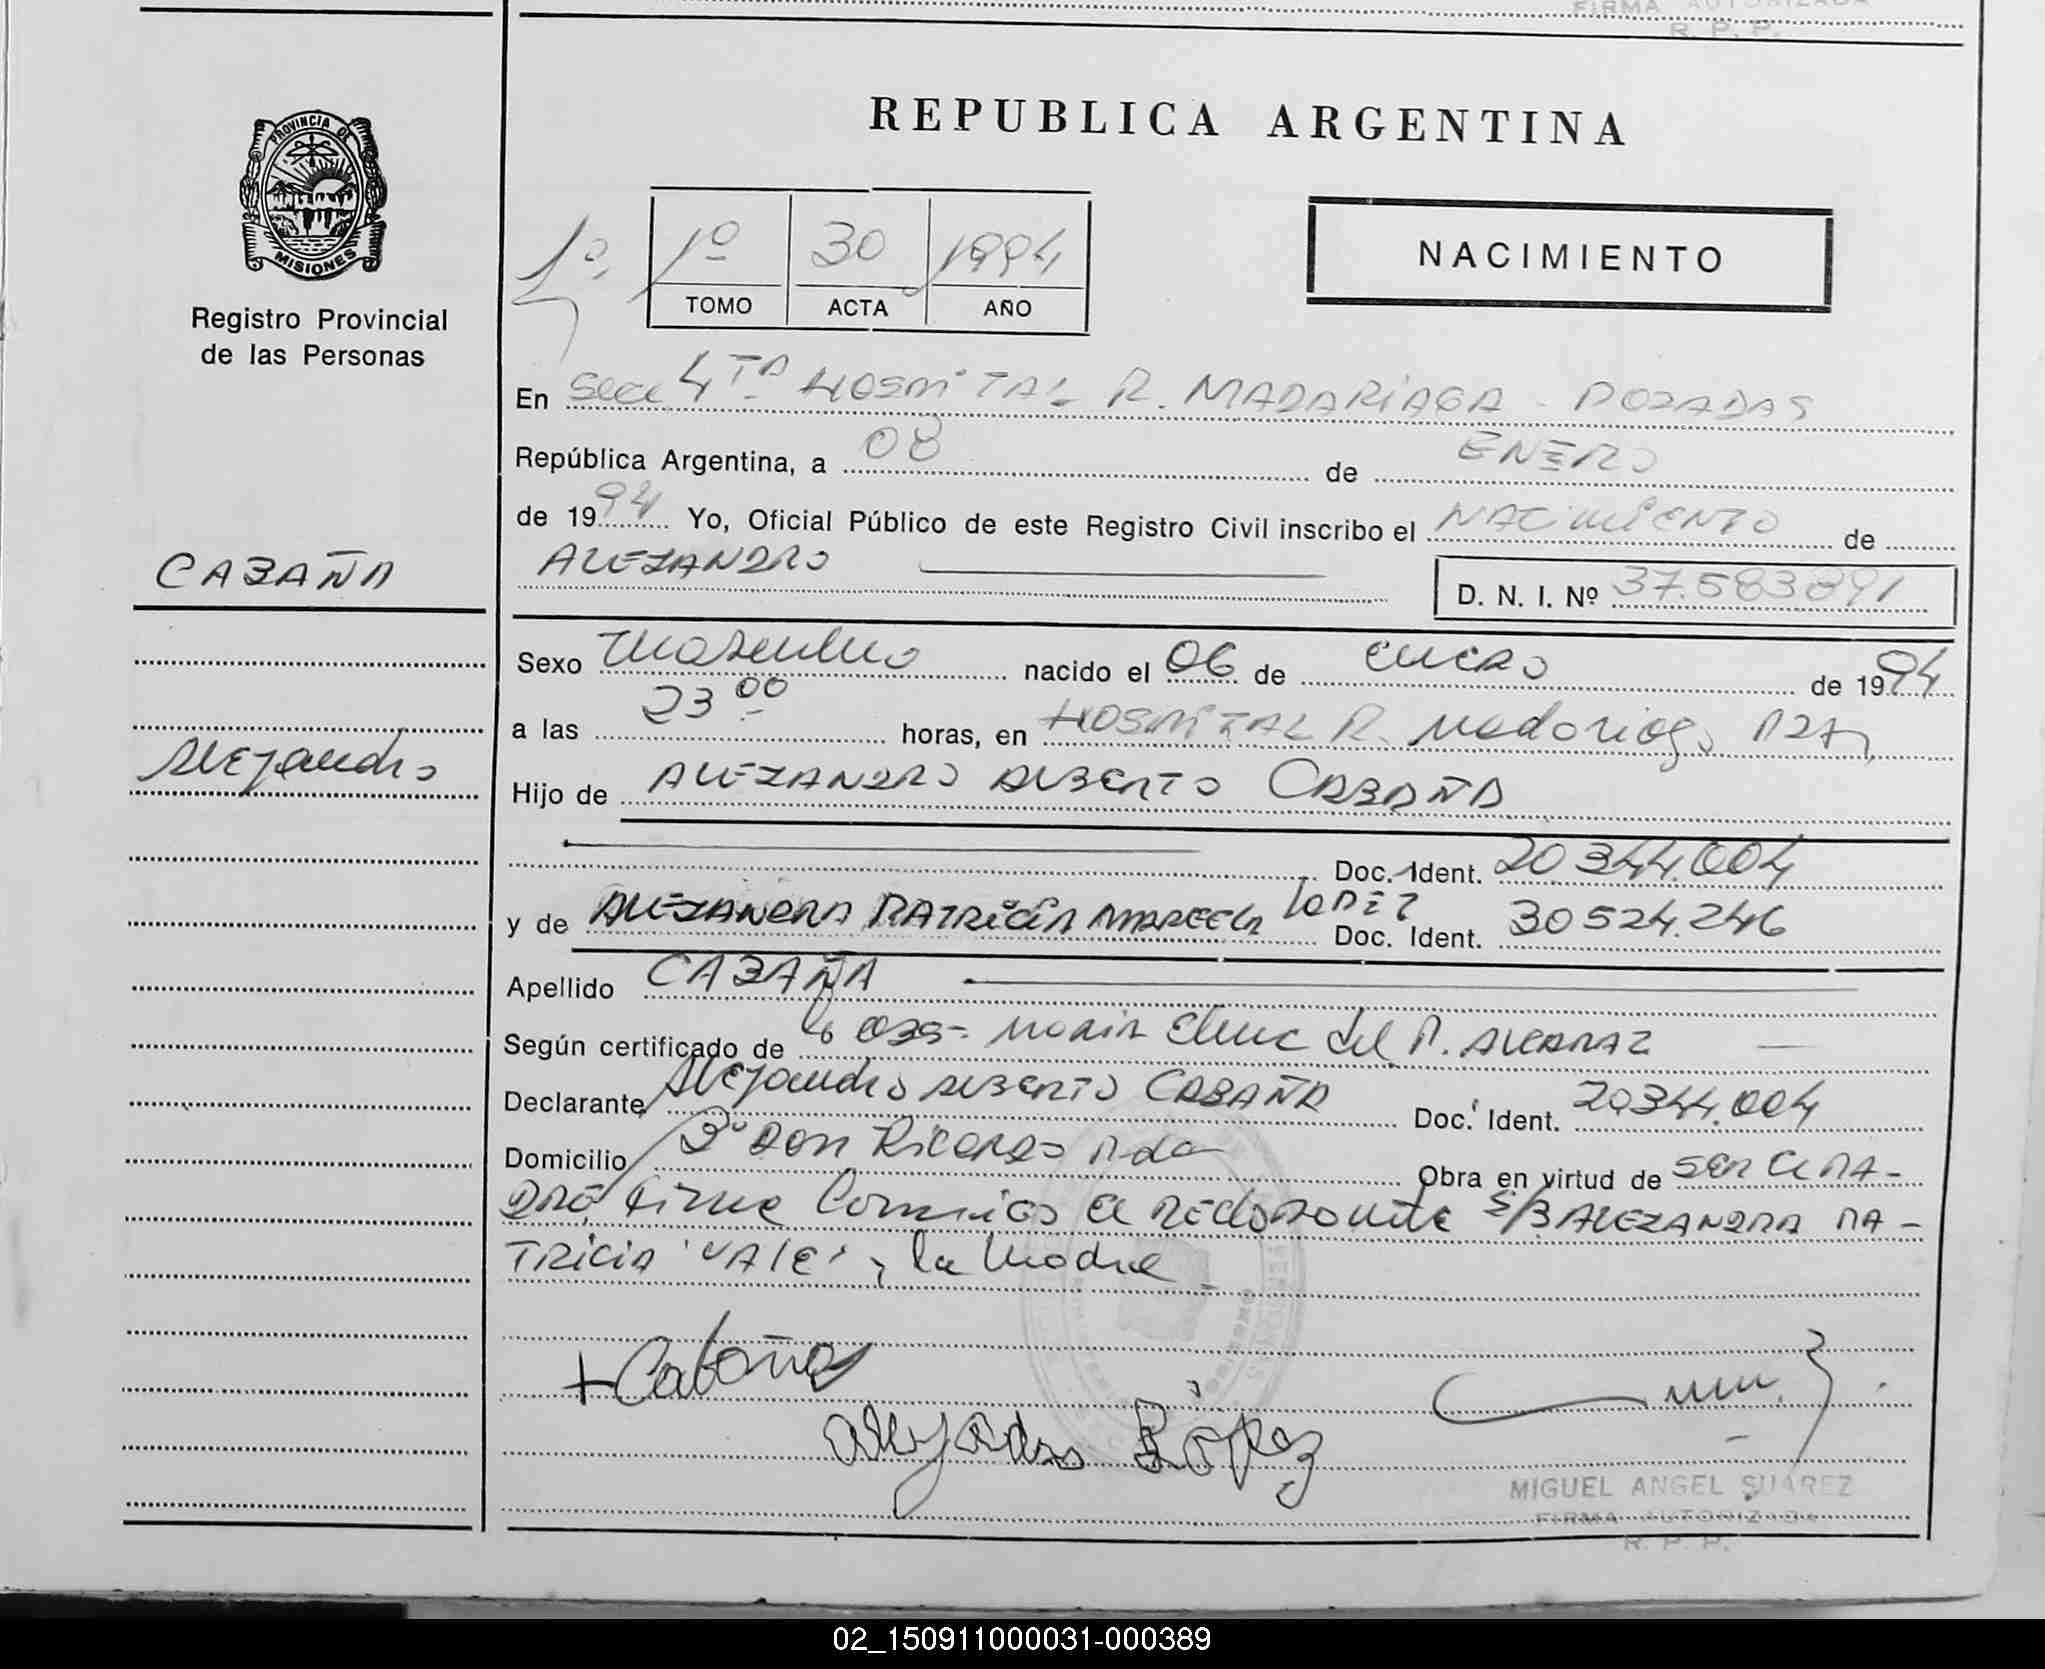 FIRMA AUTORIZADA
R. P. P.
PROVINCIA DE
MISIONES
Registro Provincial
de las Personas
CABAÑA
Alejandro
REPUBLICA ARGENTINA
1º
1º 30 1994
TOMO ACTA AÑO
NACIMIENTO
En Secc 4TA HOSPITAL R. MADARIAGA - POSADAS
República Argentina, a 08 de ENERO
de 1994 Yo, Oficial Público de este Registro Civil inscribo el NACIMIENTO de
ALEJANDRO D. N. I. Nº 37.583891
Sexo Masculino nacido el 06 de enero de 1994
a las 23 00 horas, en HOSPITAL R. Madariaga
Hijo de ALEJANDRO ALBERTO CABAÑA
Doc. Ident. 20344.004
y de ALEJANDRA PATRICIA MARCELA LOPEZ Doc. Ident. 30524.246
Apellido CABAÑA
Según certificado de OBS- MARIA Elene del P. ALCARAZ
Declarante Alejandro ALBERTO CABAÑA Doc. Ident. 20344.004
Domicilio Bº Don RICARDO Pda Obra en virtud de SER EL PA-
DRE, Firma Conmigo el REC s/B ALEJANDRA PA-
TRICIA 'VALE', la Madre
Cabaña
Alejadra López
MIGUEL ANGEL SUAREZ
FIRMA AUTORIZADA
R. P. P.
02_150911000031-000389